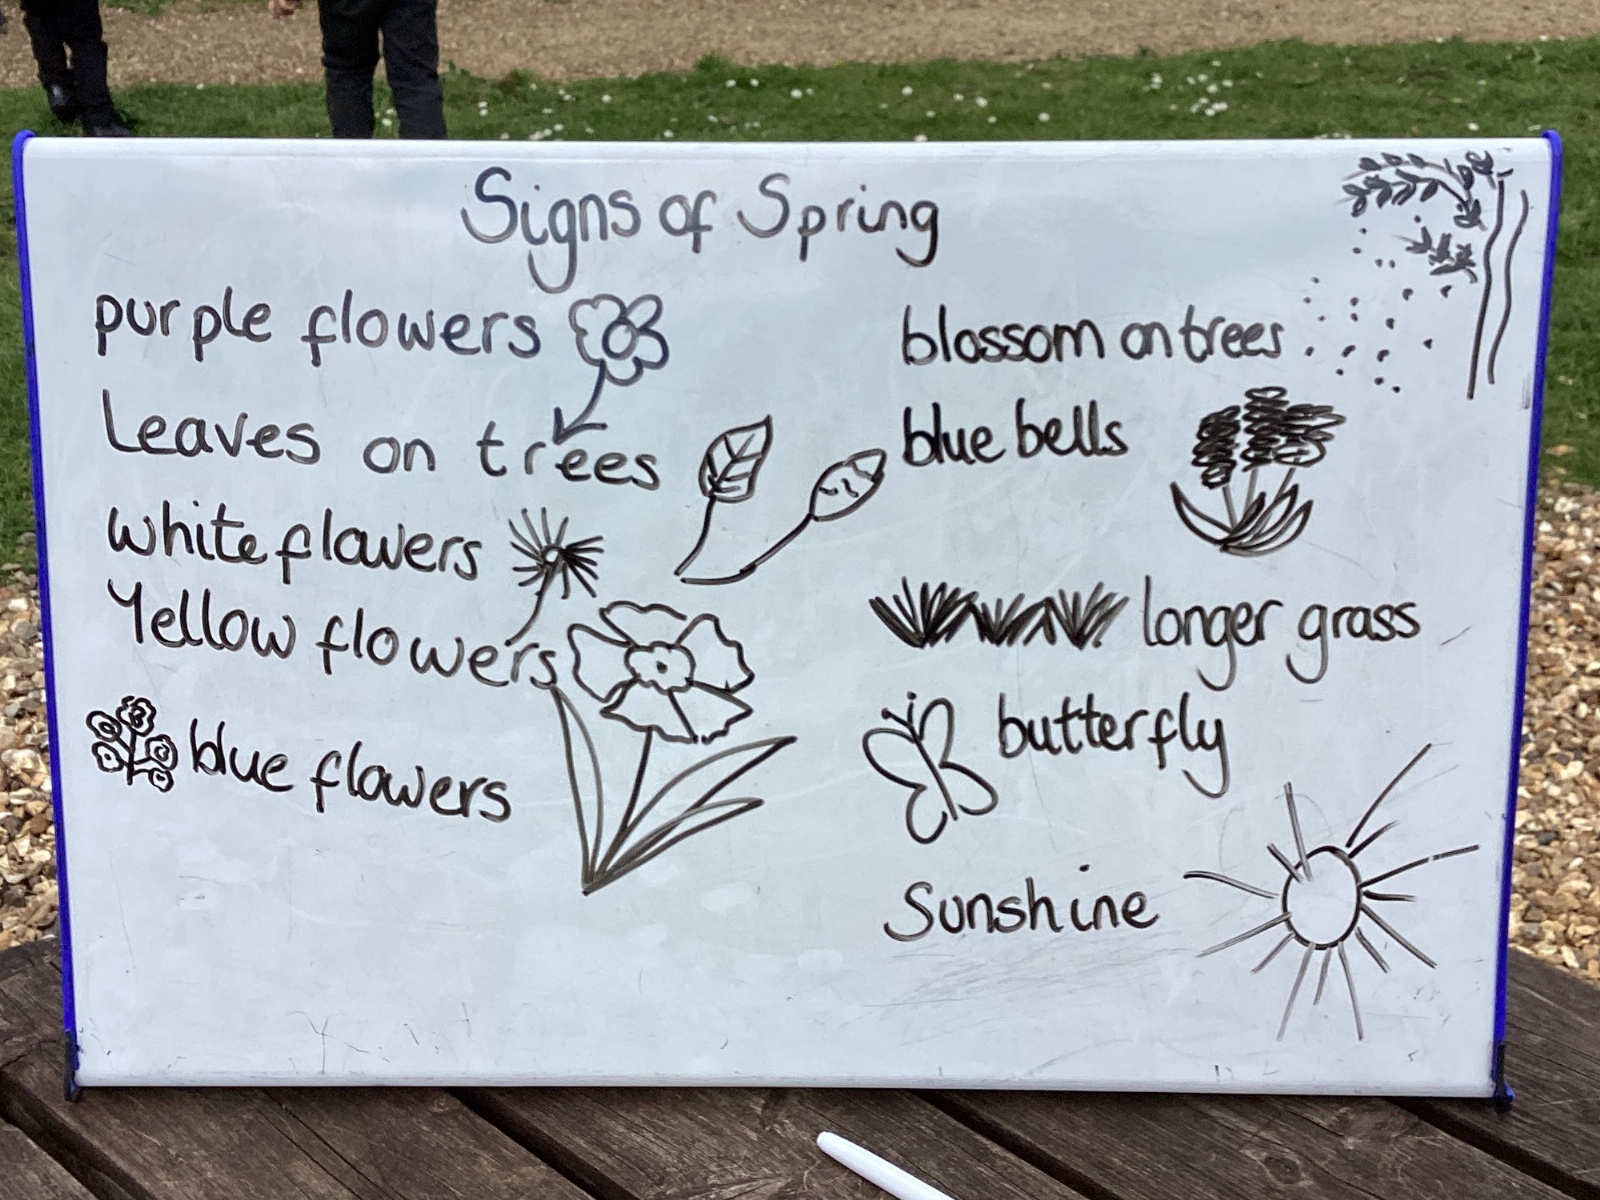 Signs of Spring
purple flowers
Leaves on trees
white flowers
Yellow flowers
blue flowers
blossom on trees
blue bells
longer grass
butterfly
Sunshine